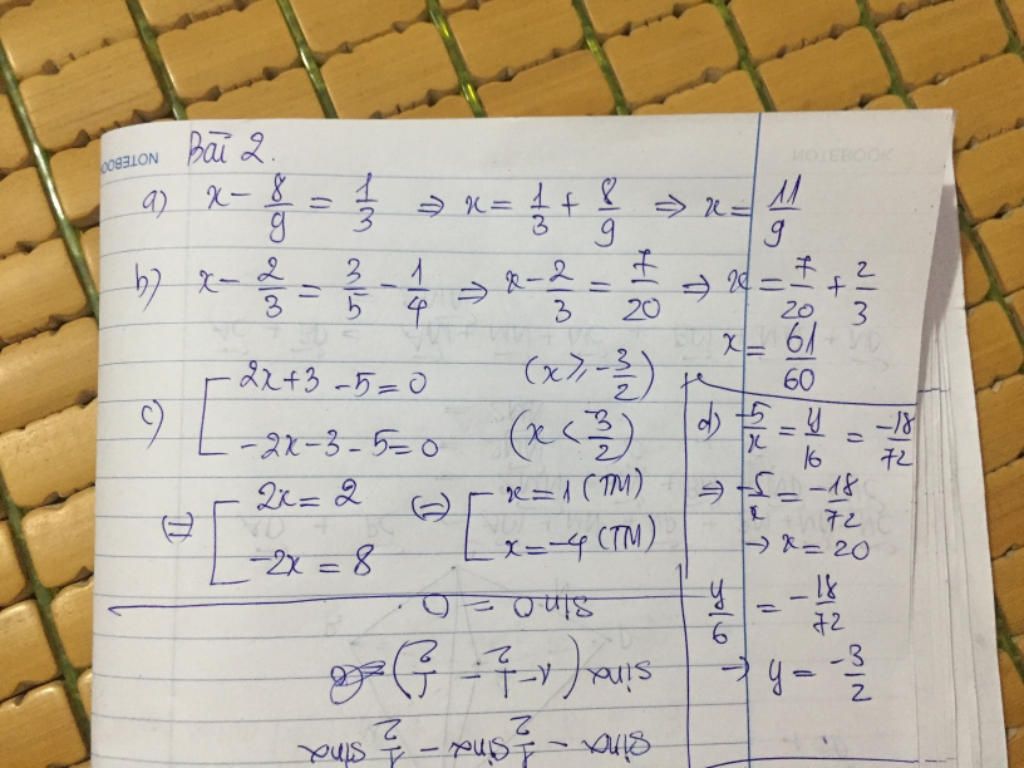 NOTEBOOK
NOTEBOOK
Bài 2.
a) x - 8/9 = 1/3 => x = 1/3 + 8/9 => x = 11/9
b) x - 2/3 = 3/5 - 1/4 => x - 2/3 = 7/20 => x = 7/20 + 2/3
x = 61/60
c) [ 2x+3 -5=0 (x ≥ -3/2)
-2x-3-5=0 (x < -3/2)
(=) [ 2x = 2 (=) [ x=1 (TM)
-2x = 8 x=-4 (TM)
d) -5/x = y/16 = -18/72
=> -5/x = -18/72
→ x = 20
y/6 = -18/72
→ y = -3/2
sin0 = 0.
sinx (x - 1/2 - 1/2)
sinx - 1/2 sinx - 1/2 sinx